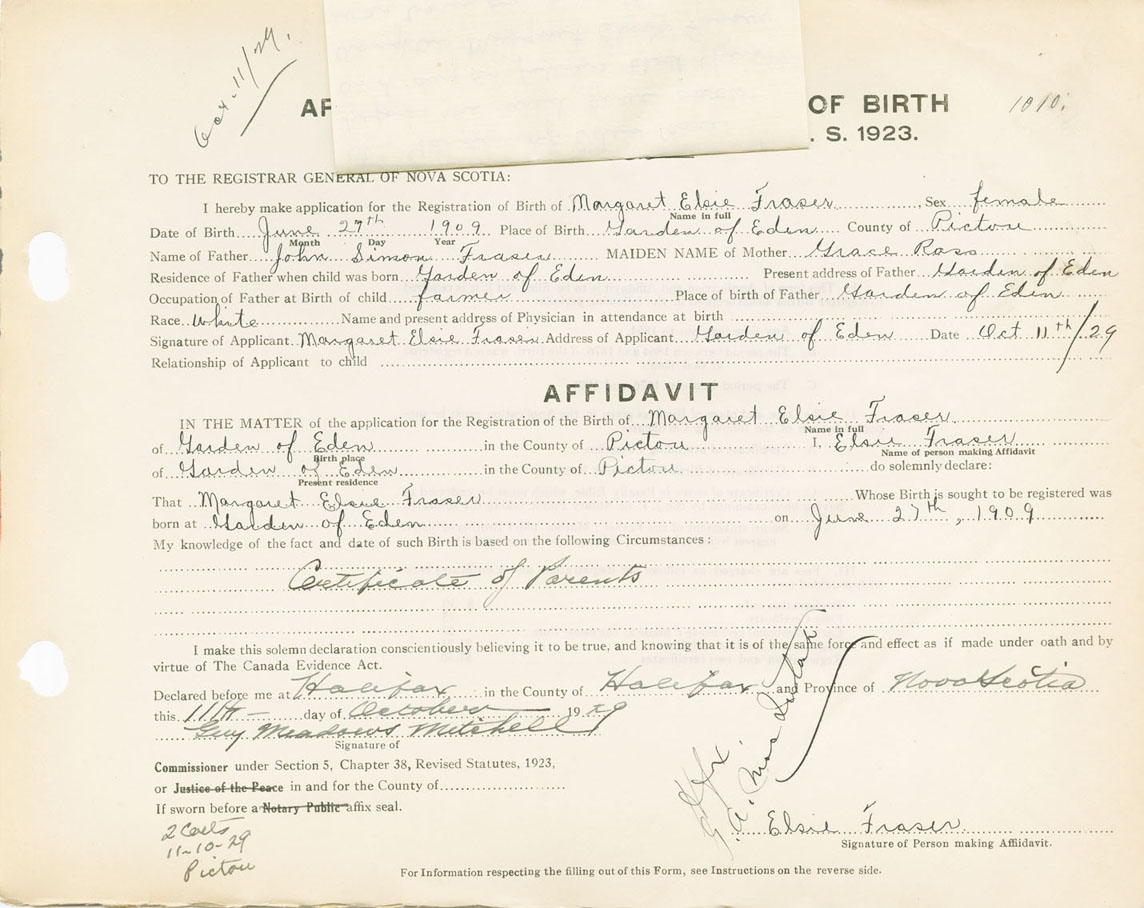 Oct. 11/29.
OF BIRTH
1010.
S. 1923.
TO THE REGISTRAR GENERAL OF NOVA SCOTIA:
I hereby make application for the Registration of Birth of Margaret Elsie Fraser, Sex female
Name in full
Date of Birth June 27th 1909 Place of Birth Garden of Eden County of Pictou
Month Day Year
Name of Father John Simon Fraser MAIDEN NAME of Mother Grace Ross
Residence of Father when child was born Garden of Eden Present address of Father Garden of Eden
Occupation of Father at Birth of child farmer Place of birth of Father Garden of Eden
Race White Name and present address of Physician in attendance at birth
Signature of Applicant Margaret Elsie Fraser Address of Applicant Garden of Eden Date Oct 11th/29
Relationship of Applicant to child
AFFIDAVIT
IN THE MATTER of the application for the Registration of the Birth of Margaret Elsie Fraser
Name in full
of Garden of Eden in the County of Pictou I, Elsie Fraser
Birth place Name of person making Affidavit
of Garden of Eden in the County of Pictou do solemnly declare:
Present residence
That Margaret Elsie Fraser Whose Birth is sought to be registered was
born at Garden of Eden on June 27th, 1909
My knowledge of the fact and date of such Birth is based on the following Circumstances:
Certificate of Parents
I make this solemn declaration conscientiously believing it to be true, and knowing that it is of the same force and effect as if made under oath and by
virtue of The Canada Evidence Act.
Declared before me at Halifax in the County of Halifax and Province of Nova Scotia
this 11th day of October 1929
Guy Meadows Mitchell
Signature of
Commissioner under Section 5, Chapter 38, Revised Statutes, 1923,
or Justice of the Peace in and for the County of
If sworn before a Notary Public affix seal.
2 Certs
11-10-29
Pictou
Elsie Fraser
Signature of Person making Affidavit.
For Information respecting the filling out of this Form, see Instructions on the reverse side.